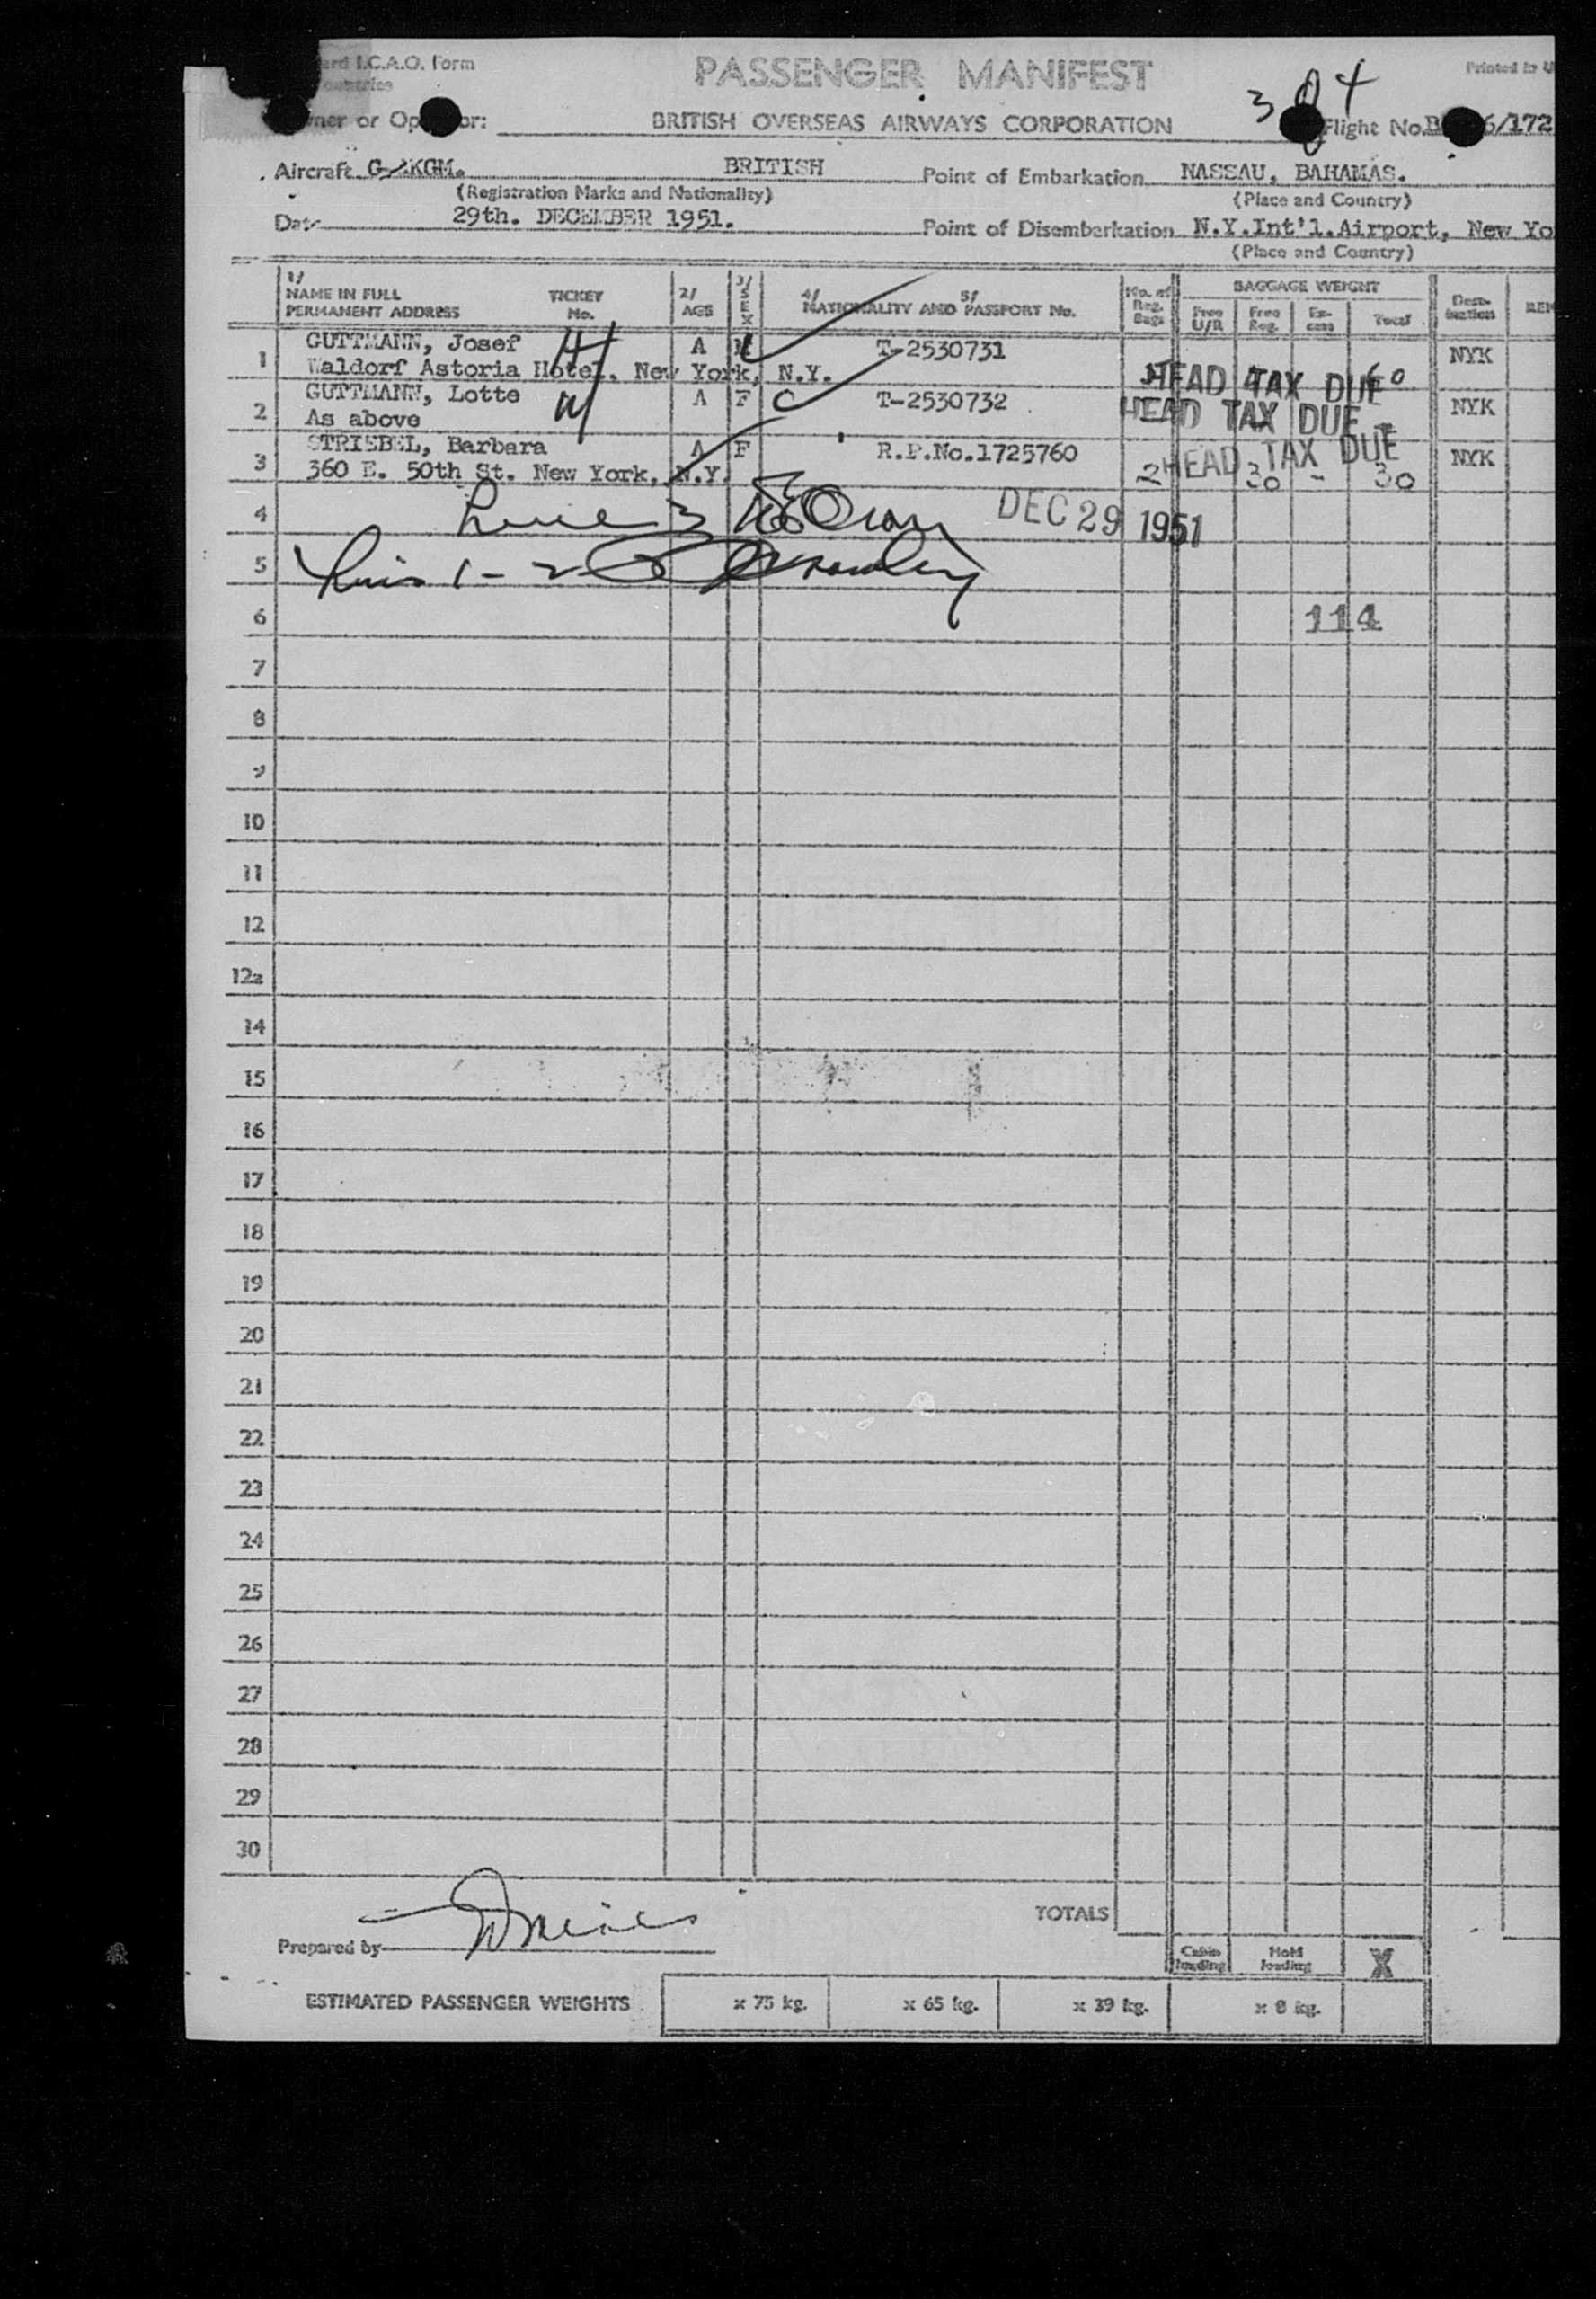 I.C.A.O. Form
PASSENGER MANIFEST
Printed in
3 4
or
BRITISH OVERSEAS AIRWAYS CORPORATION
Flight No. 6/172
Aircraft
BRITISH
Point of Embarkation NASSAU, BAHAMAS.
(Registration Marks and Nationality)
(Place and Country)
Date 29th. DECEMBER 1951.
Point of Disembarkation N.Y.Int'l.Airport, New Yo
(Place and Country)
1/ NAME IN FULL PERMANENT ADDRESS
TICKET No.
2/ AGE
3/ SEX
4/ 5/ NATIONALITY AND PASSPORT No.
No. of Reg. Bags
BAGGAGE WEIGHT
Free U/R
Free Reg.
Ex- cess
Total
Desti- nation
REM
1 GUTTMANN, Josef A M T-2530731 NYK
Waldorf Astoria Hotel. New York, N.Y. HEAD TAX DUE
2 GUTTMANN, Lotte A F T-2530732 NYK
As above HEAD TAX DUE
3 STRIEBEL, Barbara A F R.P.No.1725760 NYK
360 E. 50th St. New York, N.Y. 2 HEAD TAX DUE 30 - 30
4 DEC 29 1951
5
6 114
7
8
9
10
11
12
12a
14
15
16
17
18
19
20
21
22
23
24
25
26
27
28
29
30
TOTALS
Prepared by
Cabin loading
Hold loading
X
ESTIMATED PASSENGER WEIGHTS x 75 kg. x 65 kg. x 39 kg. x 8 kg.